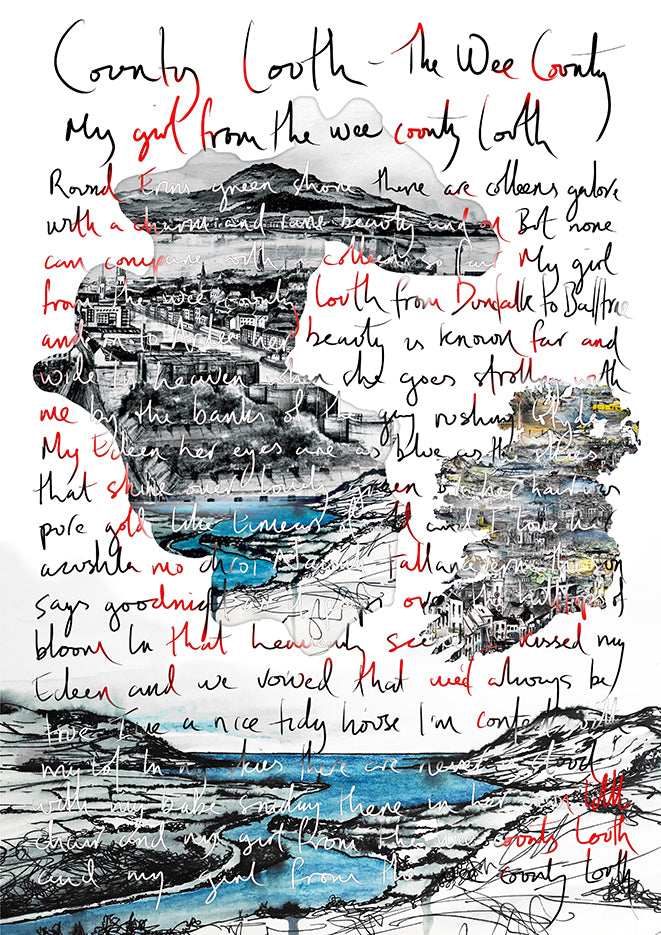 County Louth - The Wee County
My girl from the wee county Louth
Round Erins green shore there are colleens galore
with a charm and rare beauty and all But none
can compare with a colleen so fair My girl
from the wee county Louth from Dundalk to Baltray
and on to Ardee her beauty is known far and
wide In heaven when she goes strolling with
me by the banks of the gay rushing Glyde
My Eileen her eyes are as blue as the skies
that shine over lovely green her hair is
pure gold like and I love her
acushla mo chroí the sun
says goodnight over the hilltops of
bloom In that heavenly scene I kissed my
Eileen and we vowed that we'd always be
true I've a nice tidy house I'm content with
my lot In my skies there are never a cloud
with my babe smiling there in her own little
chair and my girl from the wee county Louth
and my girl from the wee county Louth